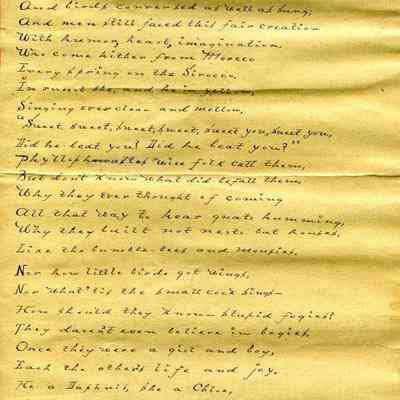 And birds conversed as well as sung;
And men still faced this fair creation
With humor, heart, imagination.
Who come hither from Morocco
Every spring on the Sirocco.
In russet she, and he in yellow,
Singing ever clear and mellow,
"Sweet, sweet, sweet, sweet, sweet you, sweet you,
Did he beat you? Did he beat you?"
Phyllopneustes wise folk call them,
But don't know what did befall them,
Why they ever thought of coming
All that way to hear gnats humming,
Why they built not nests but houses,
Like the bumble-bees and mousies.
Nor how little birds got wings,
Nor what 'tis the small cock sings—
How should they know—stupid fogies?
They daren't even believe in bogies.
Once they were a girl and boy,
Each the other's life and joy.
He a Daphnis, she a Chloe,